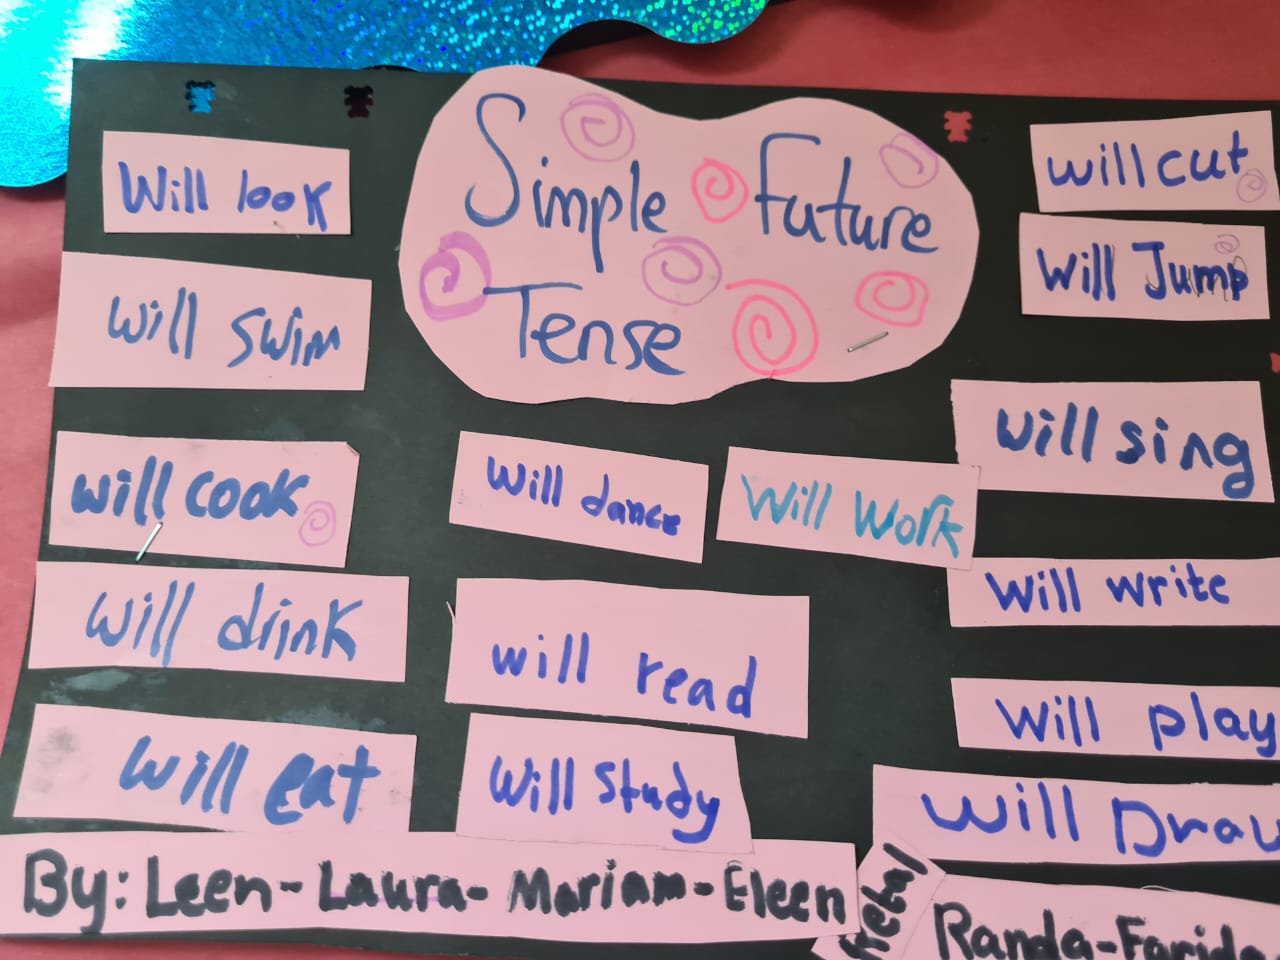 Simple Future
Tense
Will look
will swim
will cook
will drink
will eat
Will dance
Will Work
will read
Will Study
will cut
Will Jump
will sing
Will write
Will play
Will Draw
By: Leen-Laura-Mariam-Eleen
Randa-Farida